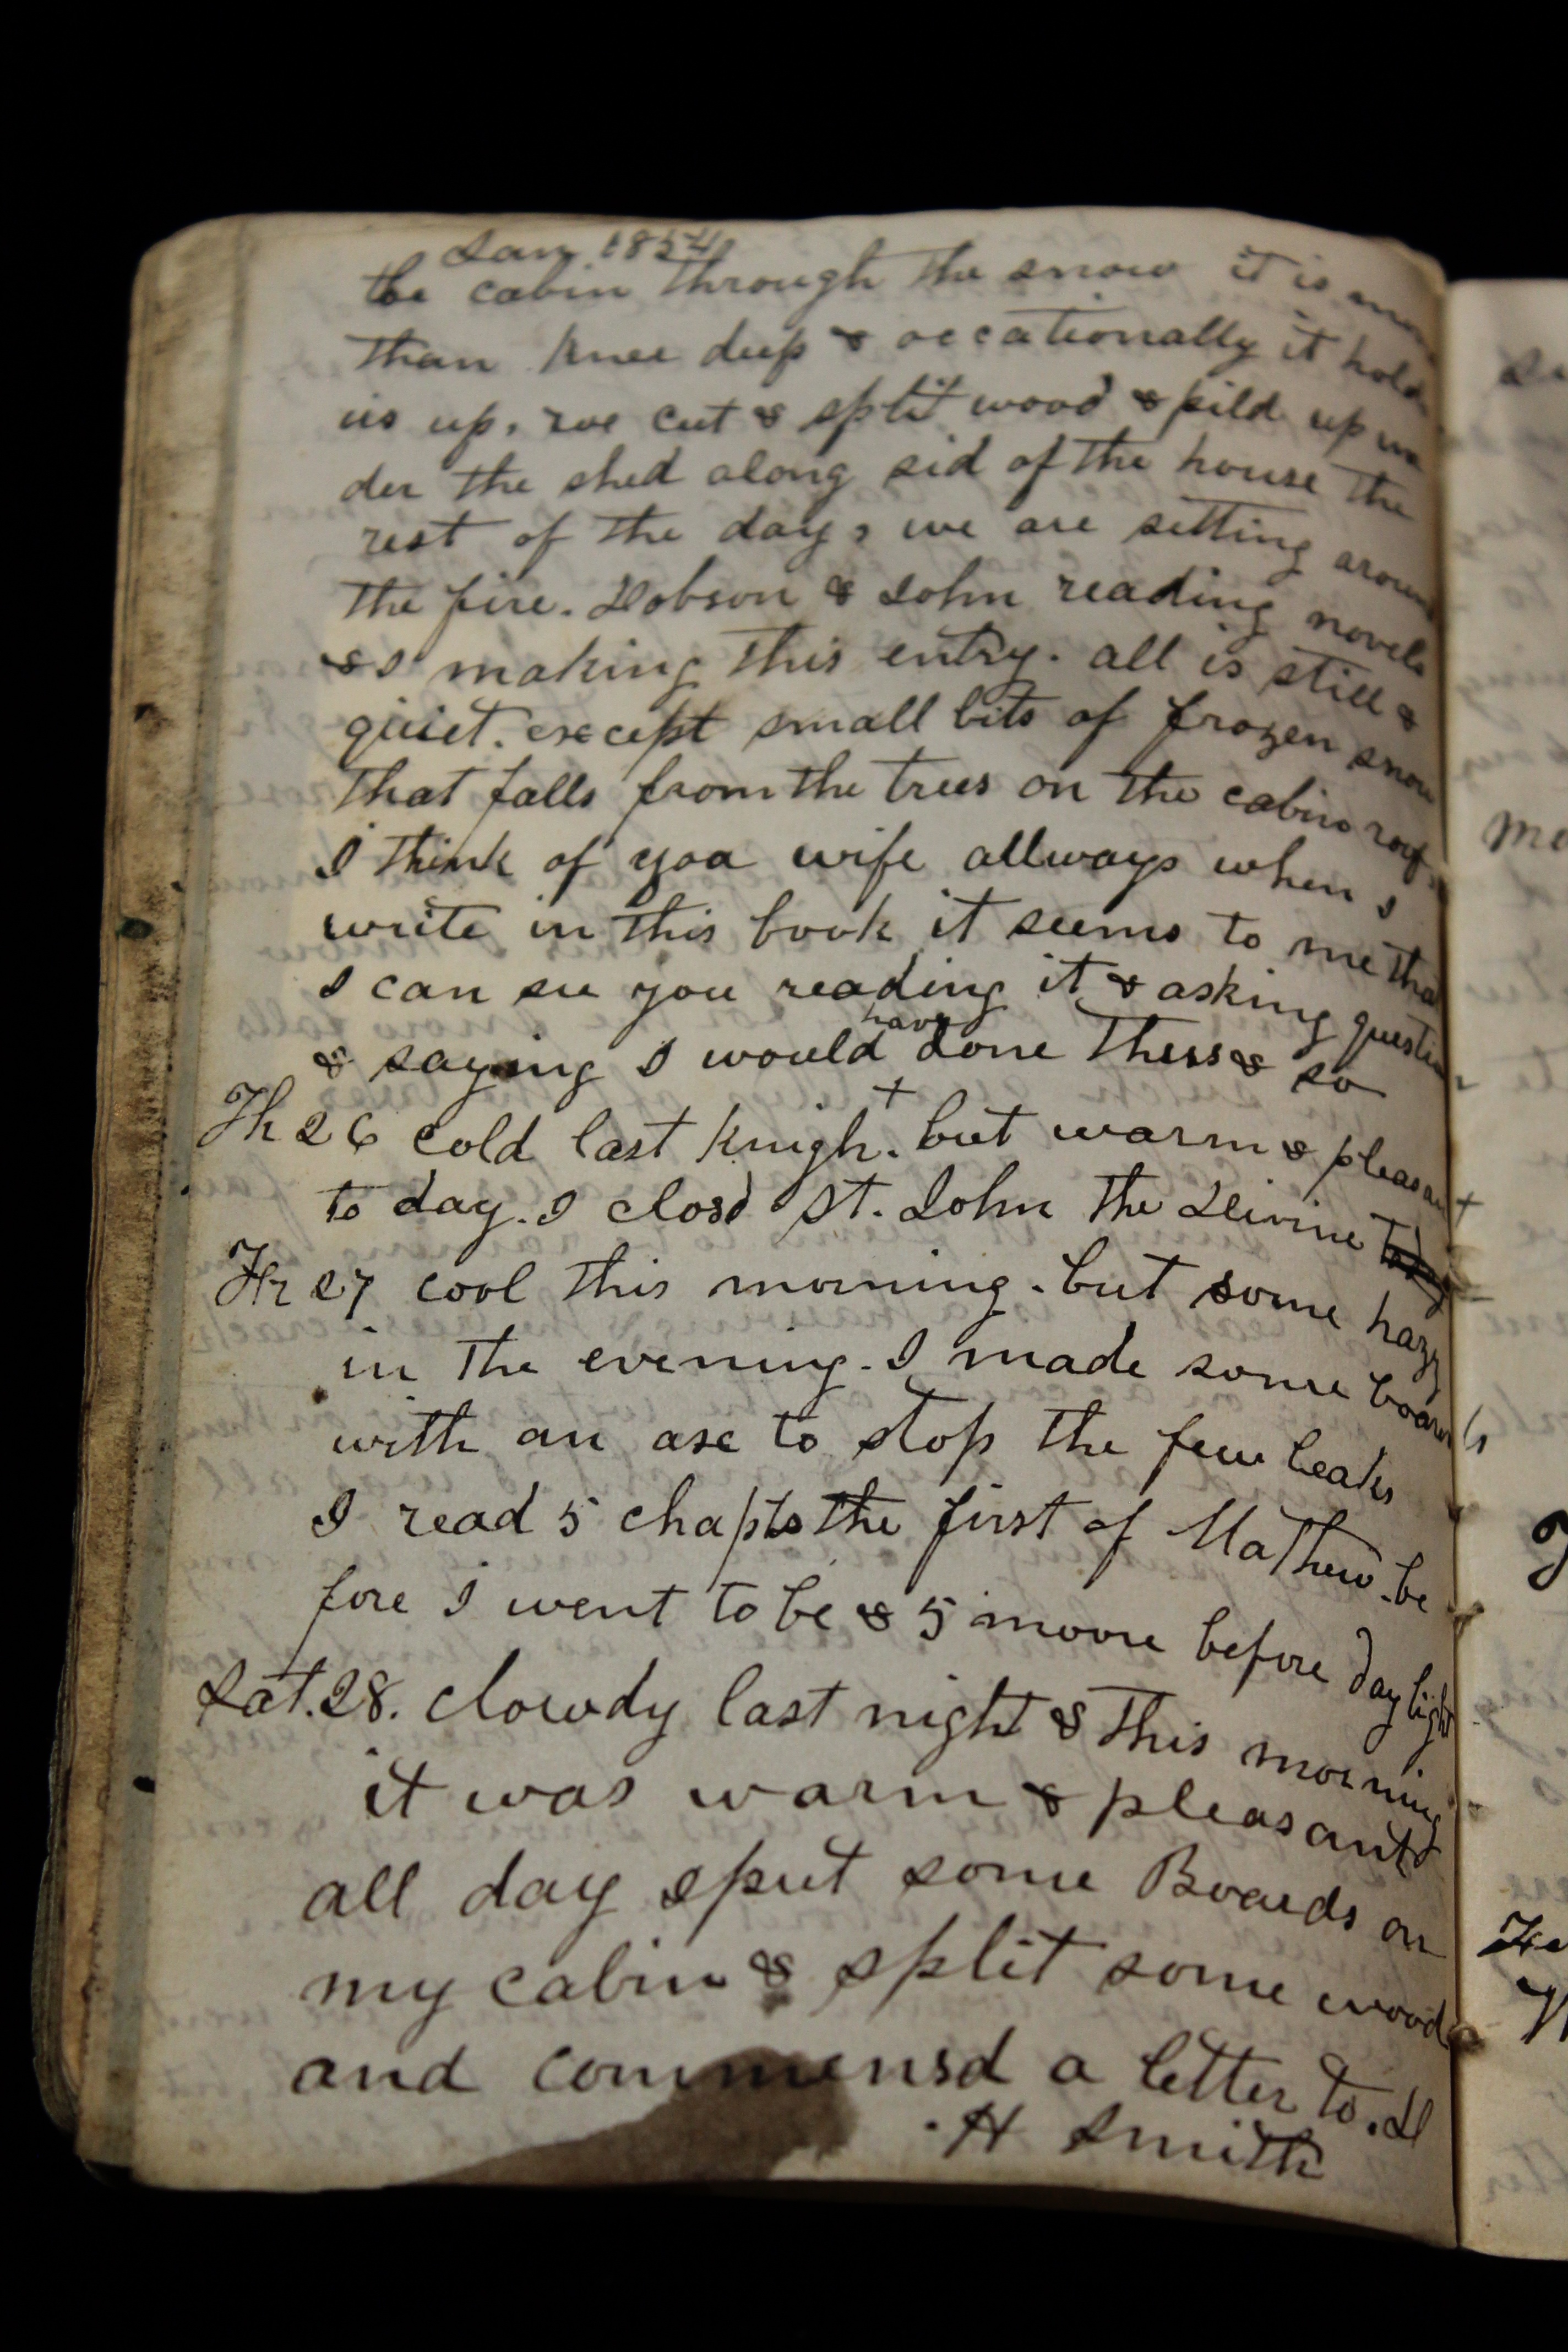 Jan 1854
the cabin through the snow it is
than knee deep & occationally it hold
us up. we cut & split wood & pild up un
der the shed along sid of the house the
rest of the day, we are setting aroun
the fire. Dobson & John reading novels
& I making this entry. all is still &
quiet. except small bits of frozen snow
that falls from the trees on the cabin roof.
I think of you wife allways when I
write in this book it seems to me tha
I can see you reading it & asking questin
have
& saying I would done thuss & so
Th 26 cold last knigh. but warm & pleasan
to day. I closd St. John the Divine
Fr 27 cool this morning. but some hazy
in the evening. I made some boar
with an axe to stop the few leaks
I read 5 chapts the first of Mathew. be
fore I went to be & 5 moore before day light
Sat. 28. clowdy last night & this morning
it was warm & pleasant
all day sput some Boards on
my cabin & split some wood
and commensd a letter to. D
. H Smith